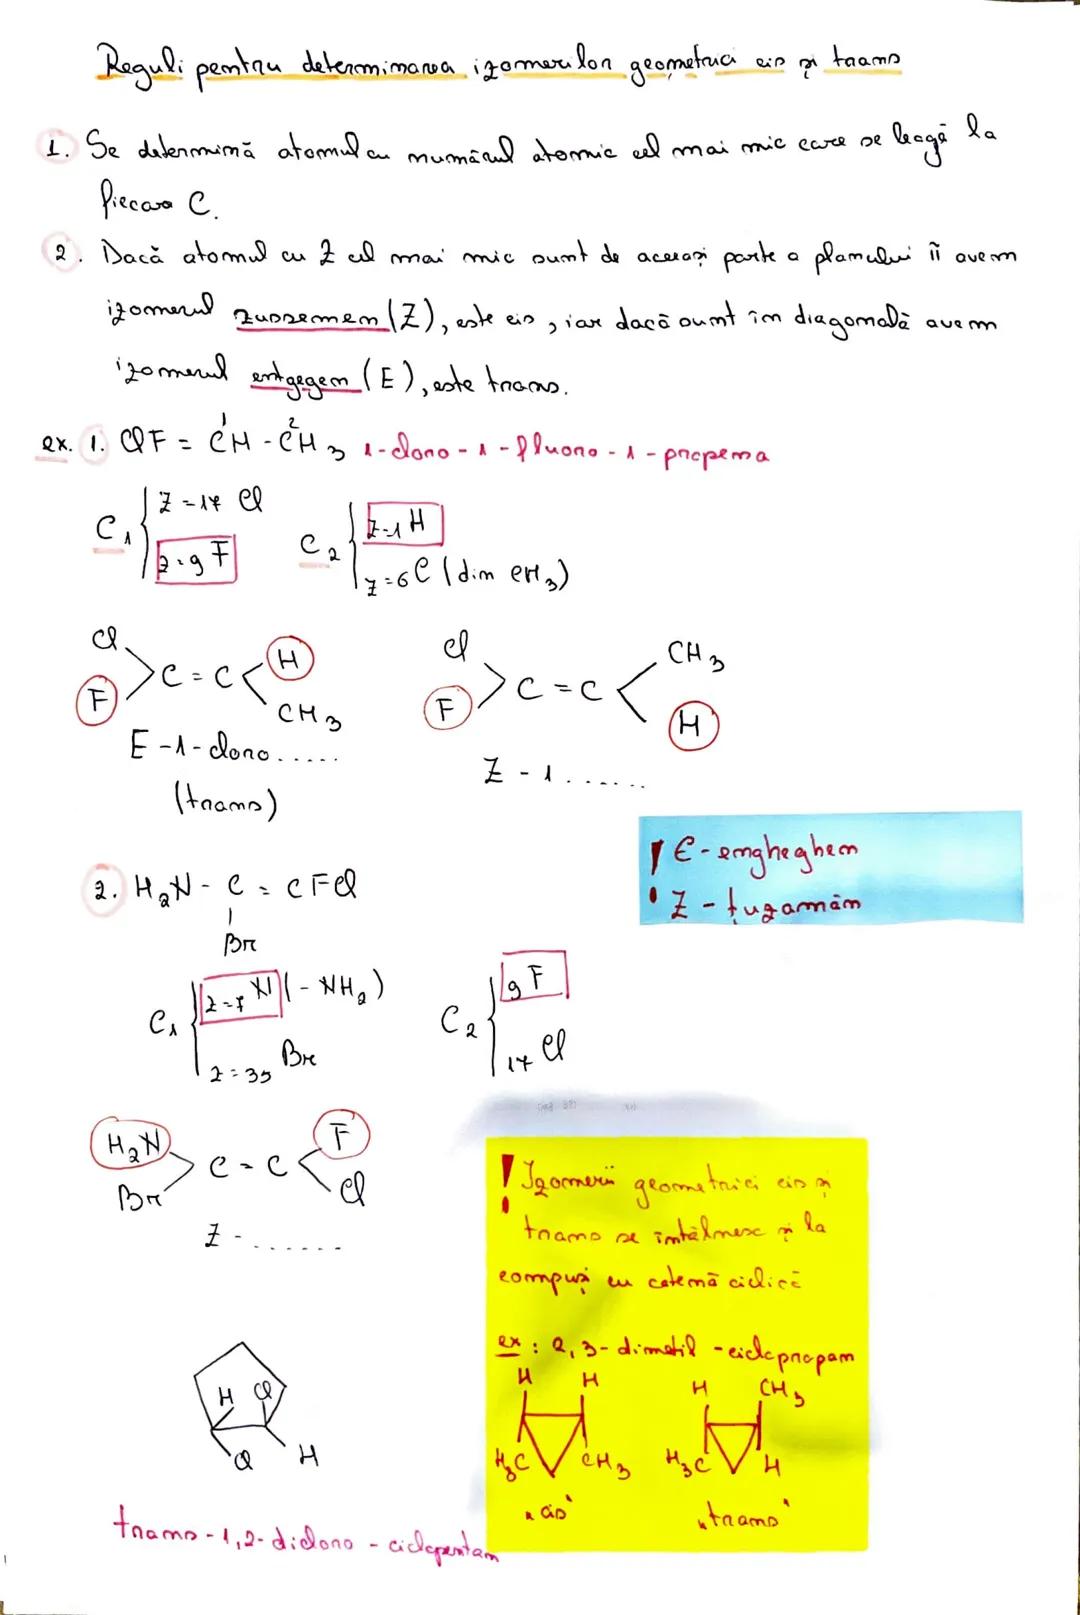 Reguli pentru determinarea izomerilor geometrici cis și trans
1. Se determină atomul cu numărul atomic cel mai mic care se leagă la
fiecare C.
2. Dacă atomul cu Z cel mai mic sunt de aceeași parte a planului îi avem
izomerul zussemen (Z), este cis, iar dacă sunt în diagonală avem
izomerul entgegen (E), este trans.
ex. 1. ClF = CH - CH3 1-cloro-1-fluoro-1-propena
1 2
C1 Z=17 Cl C2 Z=1 H
Z=9 F Z=6 C (din CH3)
Cl H Cl CH3
C = C C = C
F CH3 F H
E-1-cloro..... Z-1......
(trans)
! E - engheghen
Z - țuzamăn
2. H2N - C = CFCl
Br
C1 Z=7 N (-NH2) C2 9 F
Z=35 Br 17 Cl
H2N F
C = C
Br Cl
Z-.......
! Izomerii geometrici cis și
trans se întâlnesc și la
compuși cu catenă ciclică
ex: 2,3-dimetil-ciclopropan
H H H CH3
H3C CH3 H3C H
"cis" "trans"
H Cl
Cl H
trans-1,2-dicloro-ciclopentan